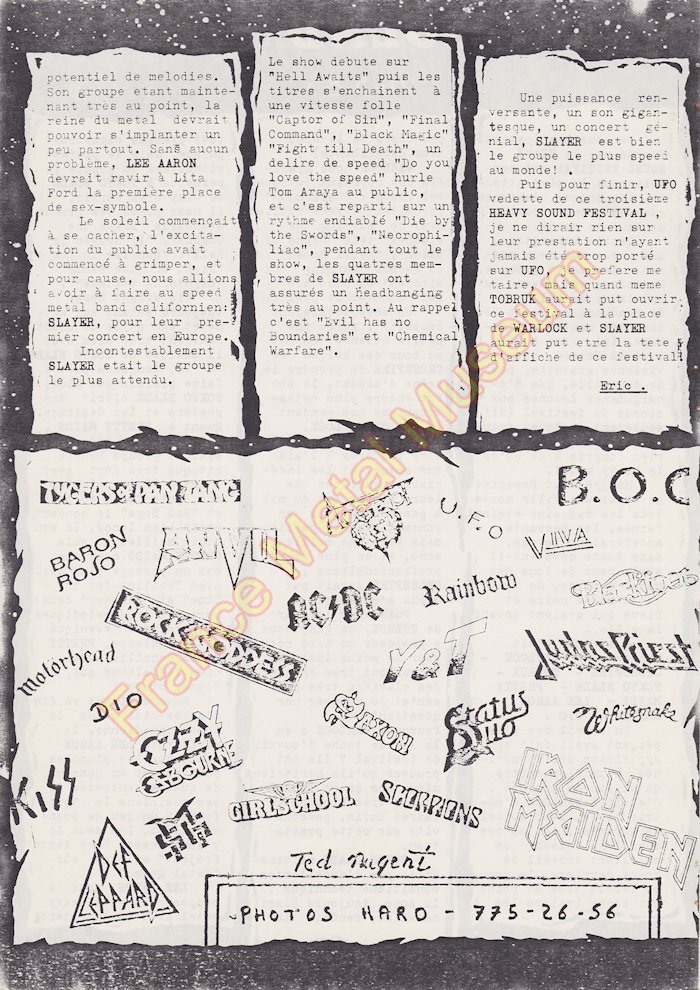 potentiel de melodies.
Son groupe etant mainte-
nant très au point, la
reine du metal devrait
pouvoir s'implanter un
peu partout. Sans aucun
problème, LEE AARON
devrait ravir à Lita
Ford la première place
de sex-symbole.
Le soleil commençait
à se cacher, l'excita-
tion du public avait
commencé à grimper, et
pour cause, nous allions
avoir à faire au speed
metal band californien:
SLAYER, pour leur pre-
mier concert en Europe.
Incontestablement
SLAYER etait le groupe
le plus attendu.
Le show debute sur
"Hell Awaits" puis les
titres s'enchainent à
une vitesse folle
"Captor of Sin", "Final
Command", "Black Magic"
"Fight till Death", un
delire de speed "Do you
love the speed" hurle
Tom Araya au public,
et c'est reparti sur un
rythme endiablé "Die by
the Swords", "Necrophi-
liac", pendant tout le
show, les quatres mem-
bres de SLAYER ont
assurés un headbanging
très au point. Au rappel
c'est "Evil has no
Boundaries" et "Chemical
Warfare".
Une puissance ren-
versante, un son gigan-
tesque, un concert gé-
nial, SLAYER est bien
le groupe le plus speed
au monde! .
Puis pour finir, UFO
vedette de ce troisième
HEAVY SOUND FESTIVAL ,
je ne dirair rien sur
leur prestation n'ayant
jamais été trop porté
sur UFO, je prefere me
taire, mais quand meme
TOBRUK aurait put ouvrir
ce festival à la place
de WARLOCK et SLAYER
aurait put etre la tete
d'affiche de ce festival
Eric .
TYGERS OF PAN TANG
B.O.C
U.F.O
BARON
ROJO
ANVIL
VIVA
AC/DC
Rainbow
Blackfoot
ROCK GODDESS
Y&T
Judas Priest
Motorhead
DIO
SAXON
Status
Quo
Whitesnake
OZZY
OSBOURNE
KISS
GIRLSCHOOL
SCORPIONS
IRON
MAIDEN
DEF
LEPPARD
Ted Nugent
PHOTOS HARD - 775-26-56
France Metal Museum